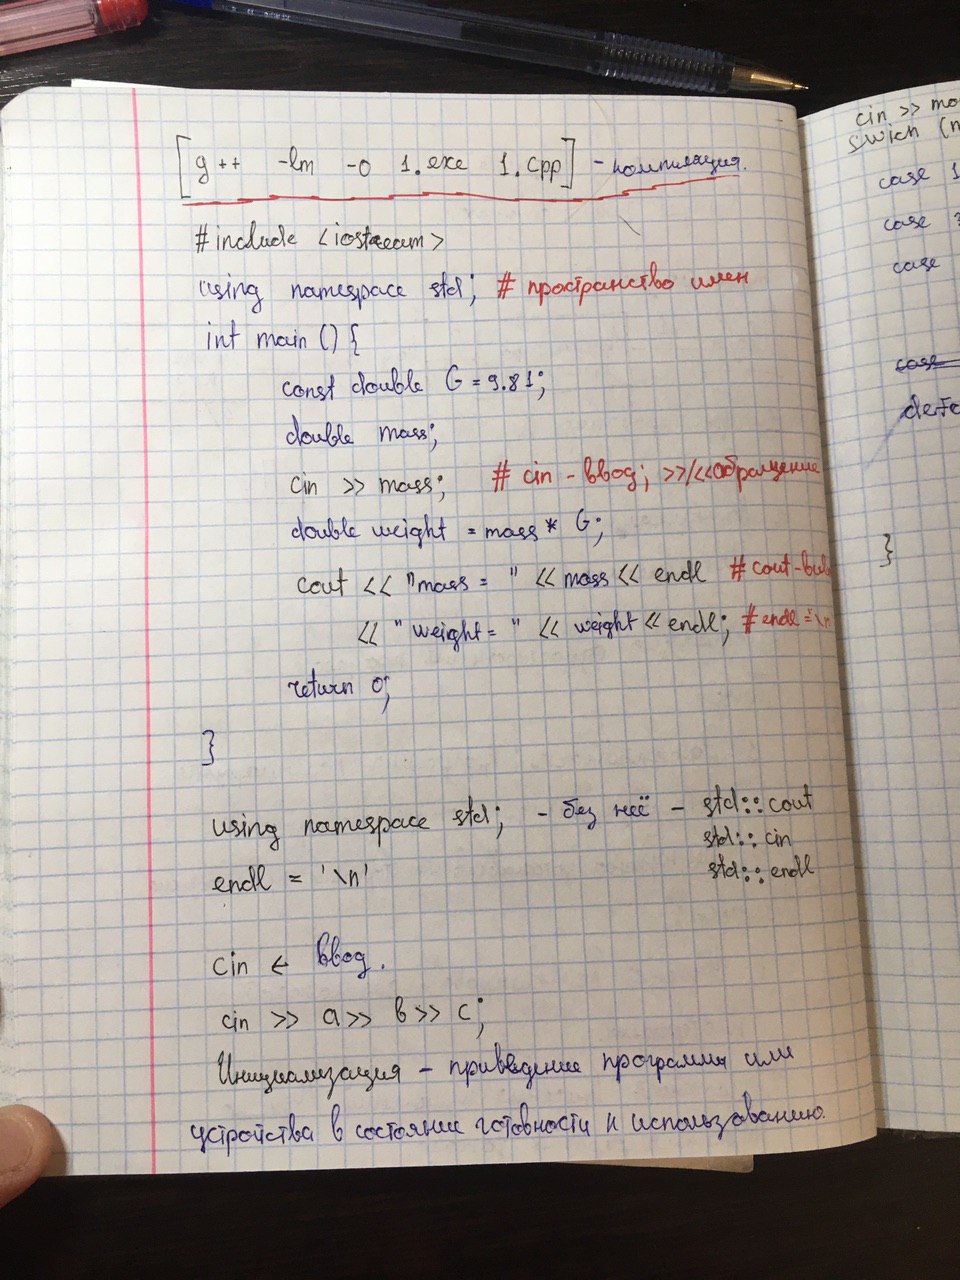 [g++ -lm -o 1.exe 1.cpp] - компиляция.
#include <iostream>
using namespace std; # пространство имен
int main () {
const double G = 9.81;
double mass;
cin >> mass; # cin - ввод; >>/<< обращение
double weight = mass * G;
cout << "mass = " << mass << endl # cout-
<< "weight = " << weight << endl; # endl = '\n
return 0;
}
using namespace std; - без неё - std::cout
std::cin
std::endl
endl = '\n'
cin ← ввод.
cin >> a >> b >> c;
Инициализация - приведение программы или
устройства в состояние готовности к использованию.
cin >>
swich (
case 1
case
case
case
}